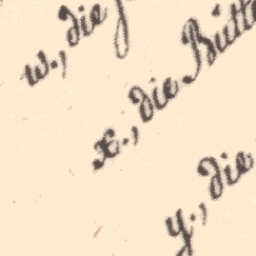 w., die
x., die Bütte
y., die